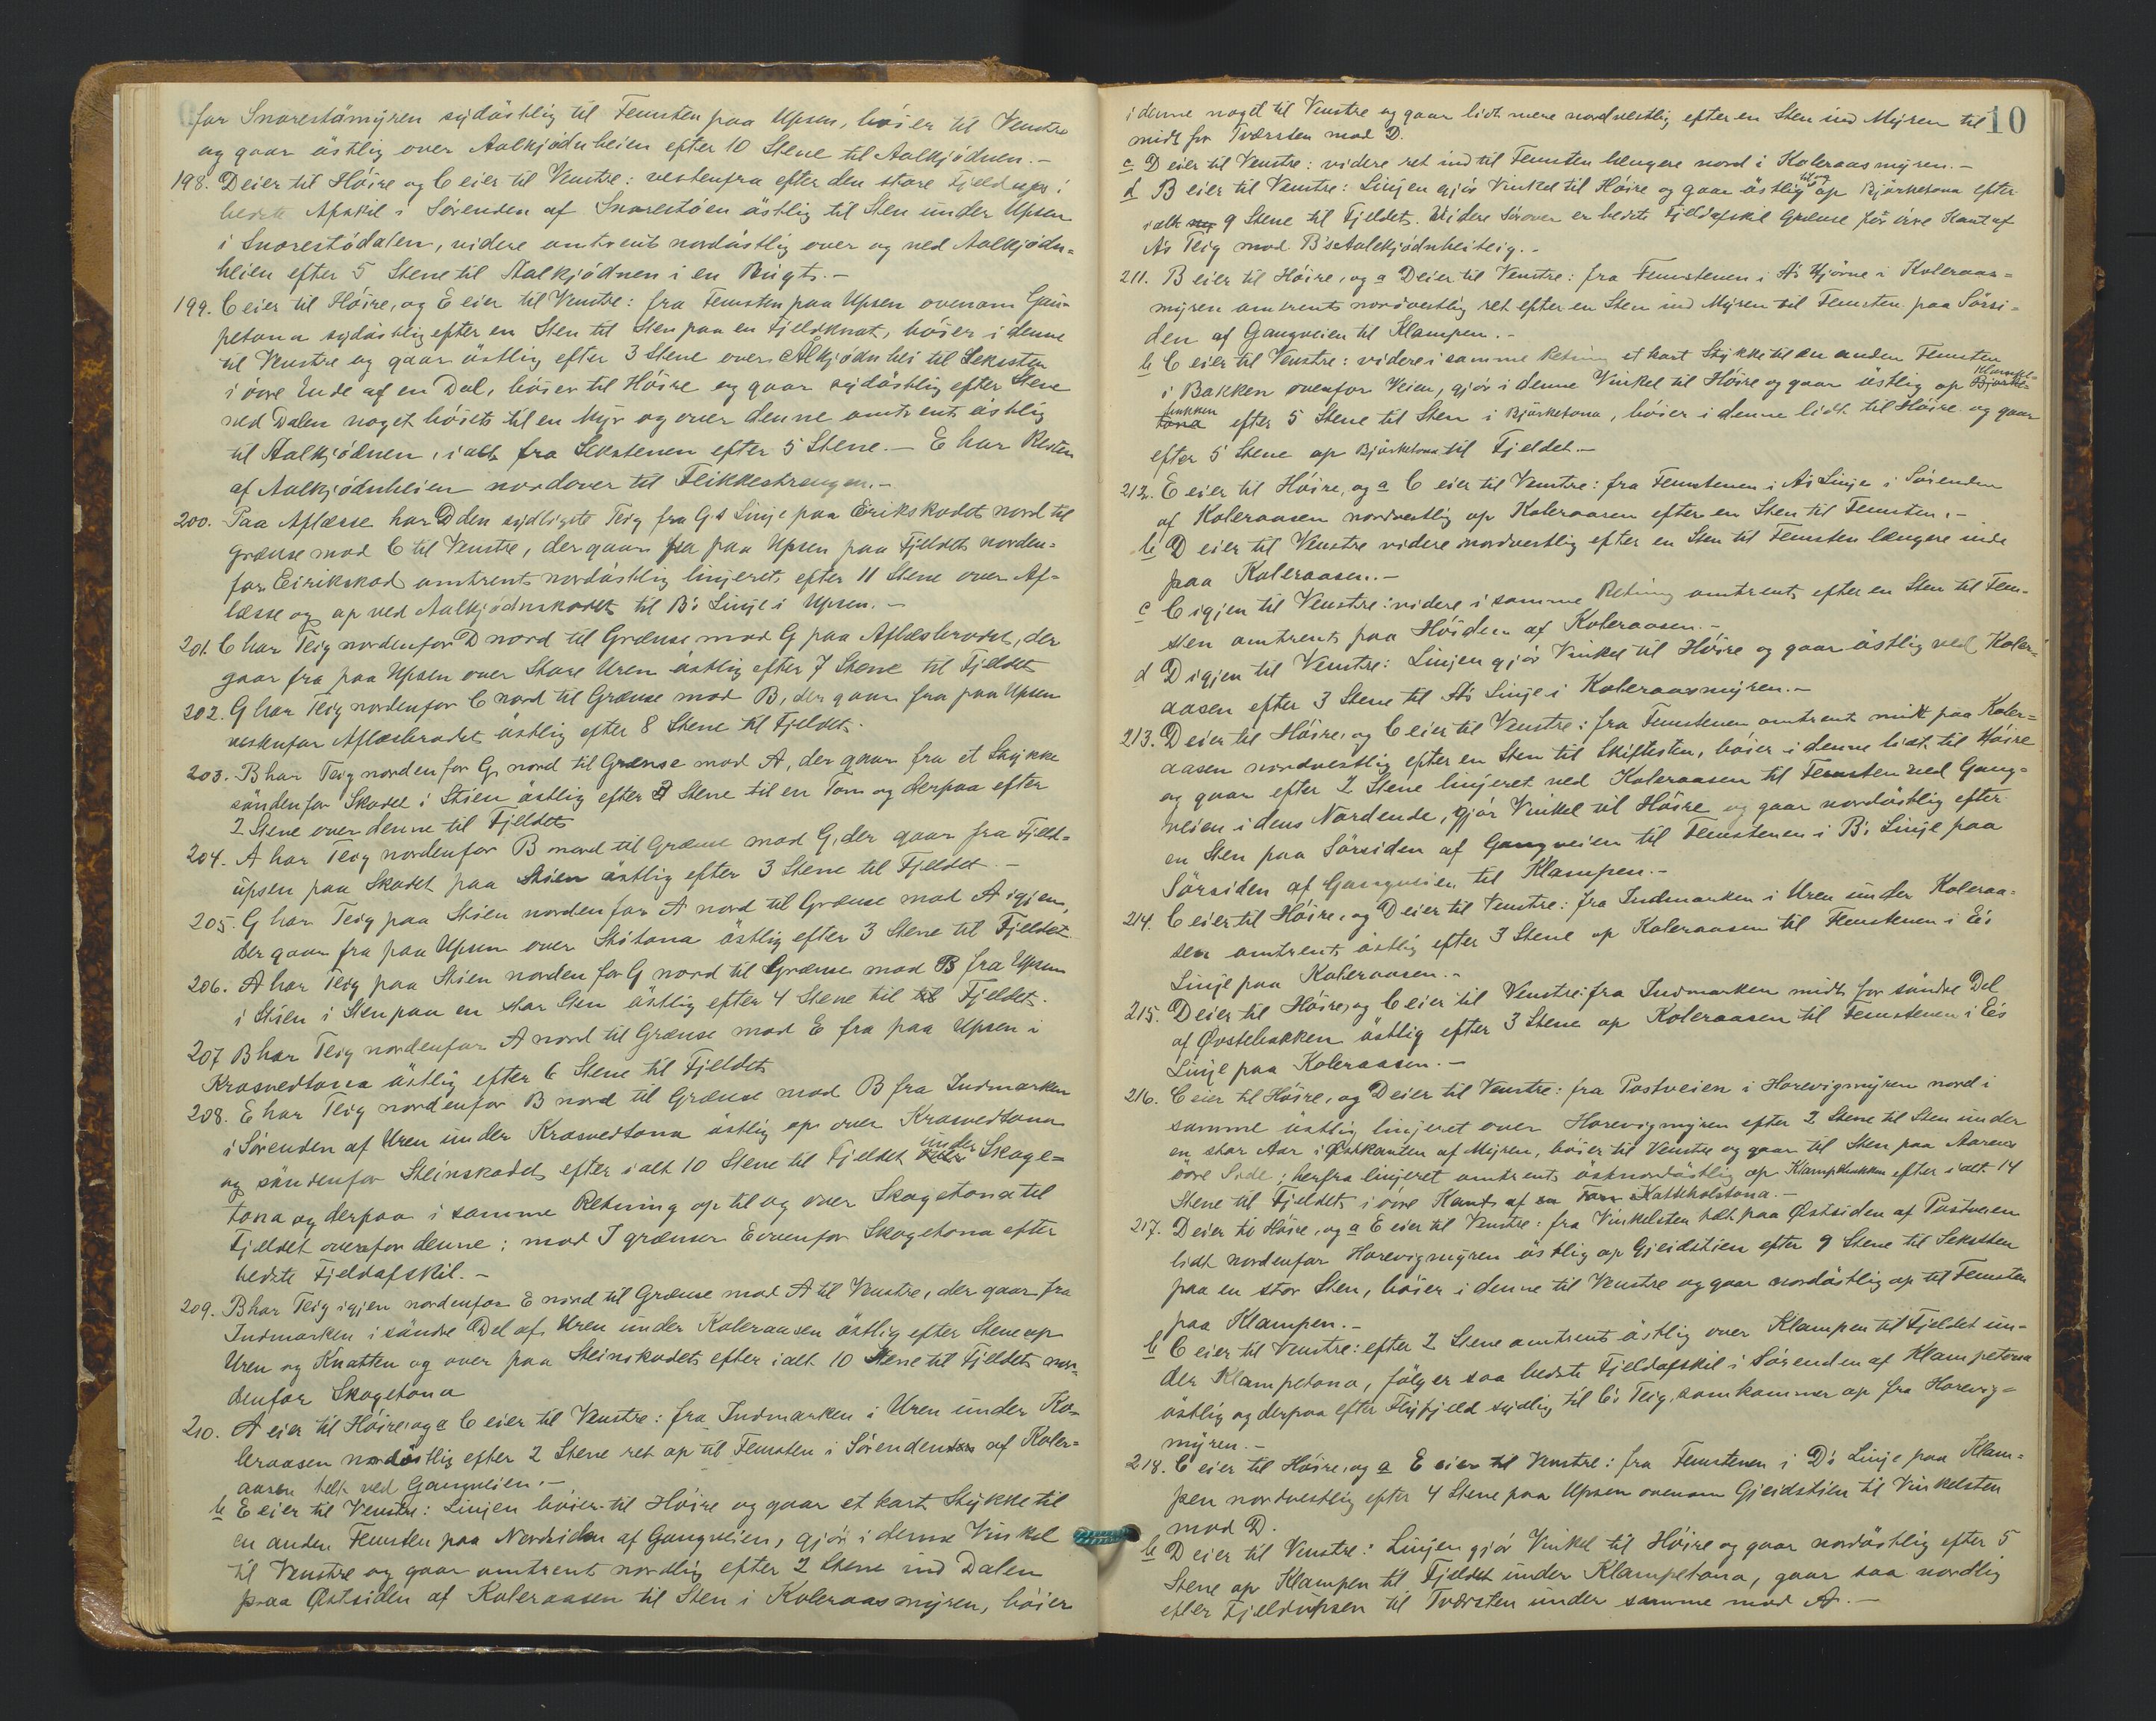 for Snorestämyren sydöstlig til Femsten paa Upsen, böier til Venstre
og gaar östlig over Aalkjödnheien efter 10 Stene til Aalkjödnen.-
198. D eier til Höire og C eier til Venstre: vestenfra efter den store Fjeldups i
bedste Afskil i Sörenden af Snorestöen östlig til Sten under Upsen
i Snorestödalen, videre omtrent nordöstlig over og ned Aalkjödn=
heien efter 5 Stene til Aalkjödnen i en Bugt.-
199. C eier til Höire, og E eier til Venstre: fra Femsten paa Upsen ovenom Gau-
petona sydöstlig efter en Sten til Sten paa en Fjeldknat, böier i denne
til Venstre og gaar östlig efter 3 Stene over Ålkjödnhei til Seksten
i övre Ende af en Dal, böier til Höire og gaar sydöstlig efter Stene
ned Dalen noget böiet til en Myr og over denne omtrent östlig
til Aalkjödnen, i alt fra Sekstenen efter 5 Stene.- E har Resten
af Aalkjödnheien nordover til Fleikkestrengen.-
200. Paa Aflæsse har D den sydligste Teig fra G's Linje paa Erikskodet nord til
grænse mod C til Venstre, der gaar fra paa Upsen paa Fjeldet norden-
for Eirikskod omtrent nordöstlig linjeret efter 11 Stene over Af-
læsse og op ved Aalkjödnskodet til B's Linje i Upsen.-
201. C har Teig nordenfor D nord til Grænse mod G paa Aflæsbrodet, der
gaar fra paa Upsen over Store Uren östlig efter 7 Stene til Fjeldet
202. G har Teig nordenfor C nord til Grænse mod B, der gaar fra paa Upsen
vestenfor Aflæsbrodet östlig efter 8 Stene til Fjeldet.
203. B har Teig nordenfor G, nord til Grænse mod A, der gaar fra et Stykke
söndenfor Skodet i Stien östlig efter Stene til en Tom og derpaa efter
2 Stene over denne til Fjeldet
204. A har Teig nordenfor B nord til Grænse mod G, der gaar fra Fjeld-
upsen paa Skodet paa Stien östlig efter 3 Stene til Fjeldet.-
205. G har Teig paa Stien nordenfor A nord til Grænse mod A igjen,
der gaar fra paa Upsen over Stitona östlig efter 3 Stene til Fjeldet
206. A har Teig paa Stien norden for G nord til Grænse mod B fra Upsen
i Stien i Sten paa en stor Sten östlig efter 4 Stene til til Fjeldet.
207 B har Teig nordenfor A nord til Grænse mod E fra paa Upsen i
Krosvedtona östlig efter 6 Stene til Fjeldet
208. E har Teig nordenfor B nord til Grænse mod B fra Indmarken
i Sörenden af Uren under Krosvedtona östlig op over Krosvedtona
og söndenfor Steinskodet efter i alt 10 Stene til Fjeldet under Skoge=
tona og derpaa i samme Retning op til og over Skogetona til
Fjeldet ovenfor denne; mod I grænser E ovenfor Skogetona efter
bedste Fjeldafskil.-
209. B har Teig igjen nordenfor E nord til Grænse mod A til Venstre, der gaar fra
Indmarken i söndre Del af Uren under Koleraasen östlig efter Stene op
Uren og Knatten og over paa Steinskodet efter i alt 10 Stene til Fjeldet nor-
denfor Skogetona
210. A eier til Höire, og a C eier til Venstre: fra Indmarken i Uren under Ko-
leraasen nordöstlig efter 2 Stene ret op til Femsten i Sörenden af Koler=
aasen helt ved Gangveien.-
b E eier til Venstre: Linjen böier til Höire og gaar et kort Stykke til
en anden Femsten paa Nordsiden af Gangveien, gjör i denne Vinkel
til Venstre og gaar omtrent nordlig efter 2 Stene ind Dalen
paa Östsiden af Koleraasen til Sten i Koleraasmyren, böier
10
i denne noget til Venstre og gaar lidt mere nordvestlig efter en Sten ind Myren til
midt for Tversten mod D.
c D eier til Venstre: videre ret ind til Femsten længere nord i Koleraasmyren.-
d B eier til Venstre: Linjen gjör Vinkel til Höire og gaar östlig til og op Björketona efter
i alt 9 Stene til Fjeldet. Videre Sörover er bedste Fjeldafskil Grænse for övre Kant af
A's Teig mod B's Aalekjödnheiteig.-
211. B eier til Höire, og a D eier til Venstre: fra Femstenen i A's Hjörne i Koleraas=
myren omtrent nordvestlig ret efter en Sten ind Myren til Femsten paa Sörsi-
den af Gangveien til Klampen.-
b C eier til Venstre: videre i samme Retning et kort Stykke til en anden Femsten
i Bakken ovenfor Veien, gjör i denne Vinkel til Höire og gaar östlig op Björke- Klampe-
tona bakken efter 5 Stene til Sten i Björketona, böier i denne lidt til Höire og gaar
efter 5 Stene op Björketona til Fjeldet.-
212. E eier til Höire, og a C eier til Venstre: fra Femstenen i A's Linje i Sörenden
af Koleraasen nordvestlig op Koleraasen efter en Sten til Femsten.-
b D eier til Venstre videre nordvestlig efter en Sten til Femsten længere inde
paa Koleraasen.-
c C igjen til Venstre: videre i samme Retning omtrent efter en Sten til Fem-
sten omtrent paa Höiden af Koleraasen.-
d D igjen til Venstre: Linjen gjör Vinkel til Höire og gaar östlig ved Koler=
aasen efter 3 Stene til A's Linje i Koleraasmyren.-
213. D eier til Höire, og C eier til Venstre: fra Femstenen omtrent midt paa Koler=
aasen nordvestlig efter en Sten til Skiftesten, böier i denne lidt til Höire
og gaar efter 2 Stene linjeret ned Koleraasen til Femsten ved Gang=
veien i dens Nordende, gjör Vinkel til Höire og gaar nordöstlig efter
en Sten paa Sörsiden af Gangveien til Femstenen i B's Linje paa
Sörsiden af Gangveien til Klampen.-
214. C eier til Höire, og D eier til Venstre: fra Indmarken i Uren under Koleraa=
sen omtrent östlig efter 3 Stene op Koleraasen til Femstenen i E's
Linje paa Koleraasen.-
215. D eier til Höire, og C eier til Venstre: fra Indmarken midt for söndre Del
af Övstebakken östlig efter 3 Stene op Koleraasen til Femstenen i E's
Linje paa Koleraasen.-
216. C eier til Höire, og D eier til Venstre: fra Postveien i Horevigmyren nord i
samme östlig linjeret over Horevigmyren efter 2 Stene til Sten under
en stor Aar i Östkanten af Myren, böier til Venstre og gaar til Sten paa Aarens
övre Side; herfra linjeret omtrent östnordöstlig op Klampebakken efter i alt 14
Stene til Fjeldet i övre Kant af en Tom i Katteholstona.-
217. D eier til Höire, og a E eier til Venstre: fra Vinkelsten tæt paa Östsiden af Postveien
lidt nordenfor Horevigmyren östlig op Gjeidstien efter 9 Stene til Seksten
paa en stor Sten, böier i denne til Venstre og gaar nordöstlig op til Femsten
paa Klampen.-
b C eier til Venstre: efter 2 Stene omtrent östlig over Klampen til Fjeldet un-
der Klampetona, fölger saa bedste Fjeldafskil i Sörenden af Klampetona
östlig og derpaa efter Flyfjeld sydlig til C's Teig, som kommer op fra Horevig=
myren.-
218. C eier til Höire, og a E eier til Venstre: fra Femstenen i D's Linje paa Klam-
pen nordvestlig efter 4 Stene paa Upsen ovenom Gjeidstien til Vinkelsten
mod D.
b D eier til Venstre: Linjen gjör Vinkel til Höire og gaar nordöstlig efter 5
Stene op Klampen til Fjeldet under Klampetona, gaar saa nordlig
efter Fjeldupsen til Tversten under samme mod A.-